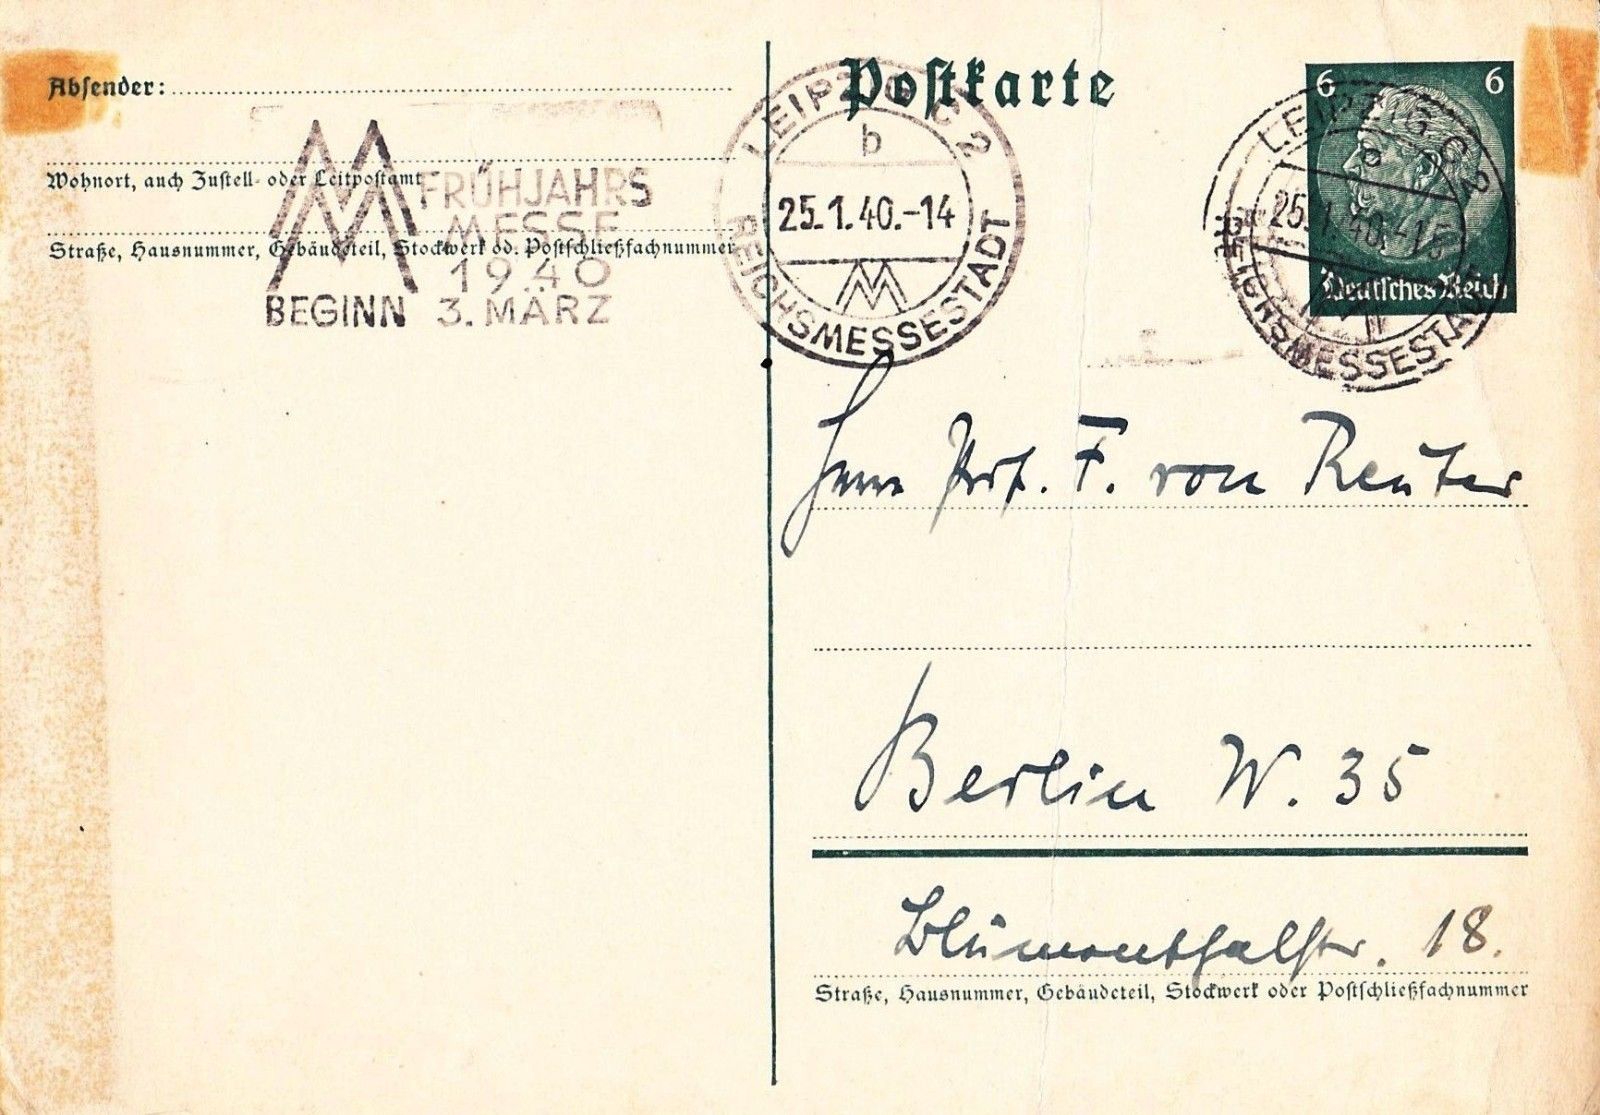 Absender:
Wohnort, auch Zustell- oder Leitpostamt
Straße, Hausnummer, Gebäudeteil, Stockwerk od. Postschließfachnummer
FRÜHJAHRS
MESSE
1940
BEGINN 3. MÄRZ
LEIPZIG C 2
b
25.1.40.-14
REICHSMESSESTADT
Postkarte
6 6
Deutsches Reich
LEIPZIG C 2
25.1.40.-15
REICHSMESSESTADT
Herrn Prof. F. von Reuter
Berlin W. 35
Blumenthalstr. 18.
Straße, Hausnummer, Gebäudeteil, Stockwerk oder Postschließfachnummer